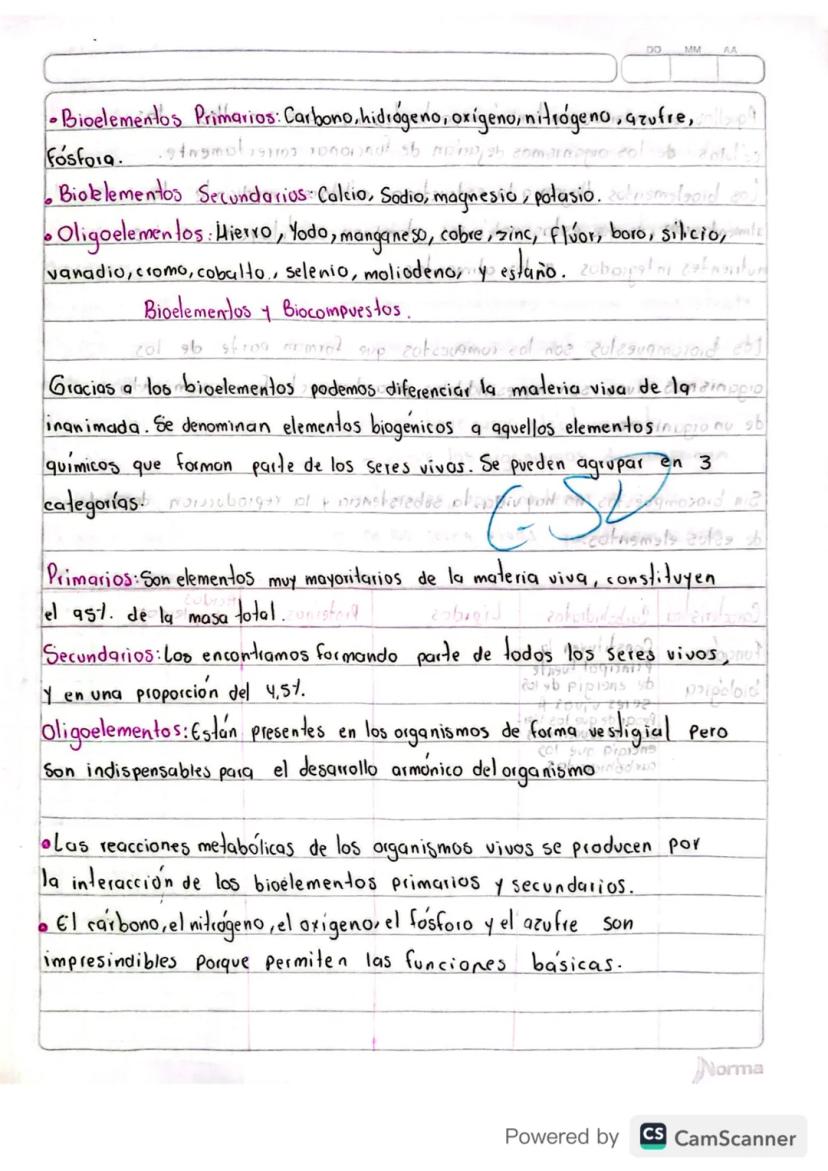 DD MM AA
• Bioelementos Primarios: Carbono, hidrógeno, oxígeno, nitrógeno, azufre,
fósforo.
• Bioelementos Secundarios: Calcio, Sodio, magnesio, potasio.
• Oligoelementos: Hierro, Yodo, manganeso, cobre, zinc, flúor, boro, silicio,
vanadio, cromo, cobalto, selenio, moliodeno, y estaño.
Bioelementos y Biocompuestos.
Gracias a los bioelementos podemos diferenciar la materia viva de la
inanimada. Se denominan elementos biogénicos a aquellos elementos
químicos que forman parte de los seres vivos. Se pueden agrupar en 3
categorías.
Primarios: Son elementos muy mayoritarios de la materia viva, constituyen
el 95%. de la masa total.
Secundarios: Los encontramos formando parte de todos los seres vivos,
y en una proporción del 4,5%.
Oligoelementos: Están presentes en los organismos de forma vestigial pero
son indispensables para el desarrollo armónico del organismo
• Las reacciones metabólicas de los organismos vivos se producen por
la interacción de los bioelementos primarios y secundarios.
• El carbono, el nitrógeno, el oxígeno, el fósforo y el azufre son
impresindibles porque permiten las funciones básicas.
Norma
Powered by CS CamScanner